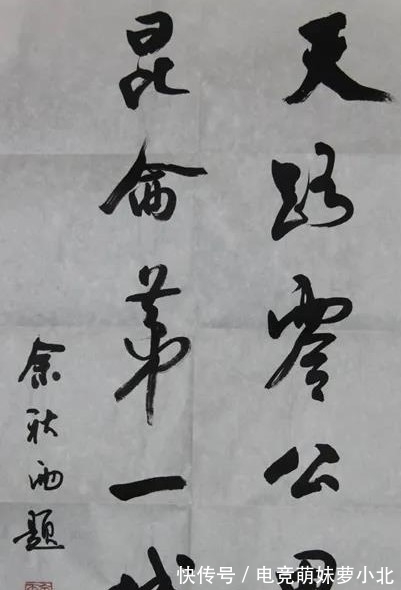 天路零公里
昆侖第一城
余秋雨題
快传号/电竞萌妹萝小北